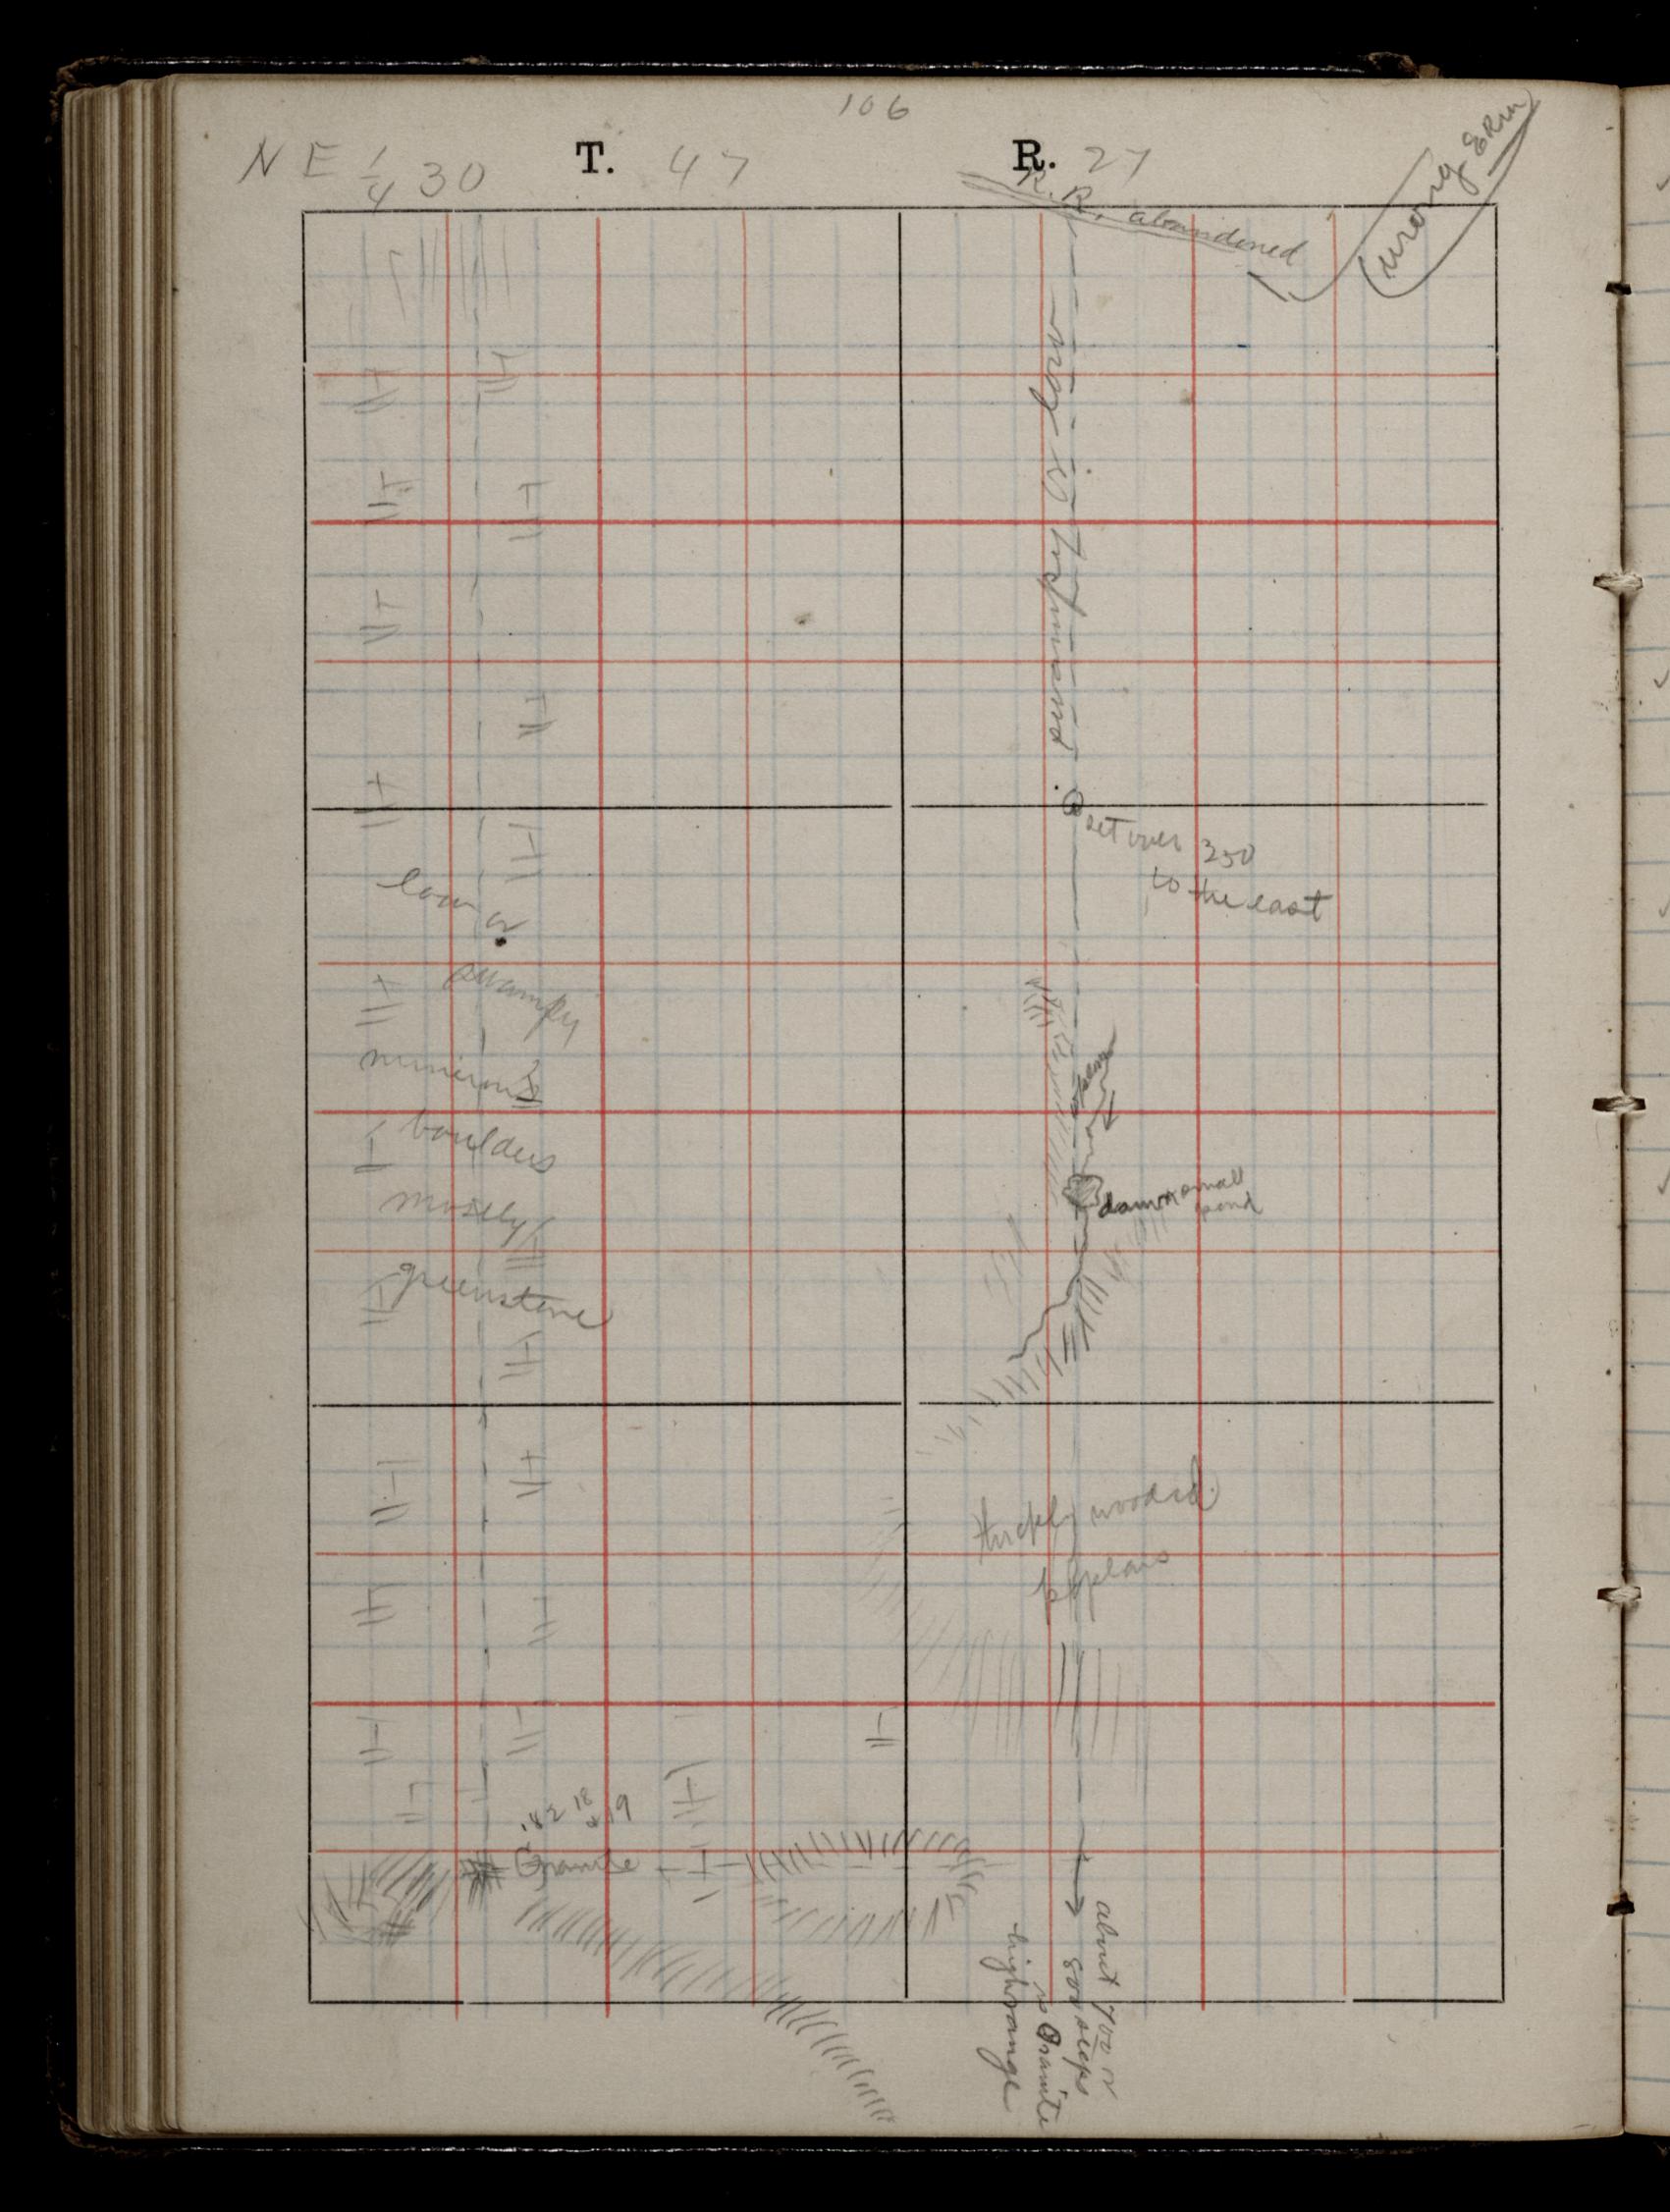 106
NE 1/4 30 T. 47 R. 27
R.R. abandoned
(wrong ERM)
set over 250
to the east
low &
swampy
numerous
boulders
mostly
greenstone
dam & small
pond
thickly wooded
poplars
18 & 19
Granite
about 700 or
800 steps
is Granite
high range